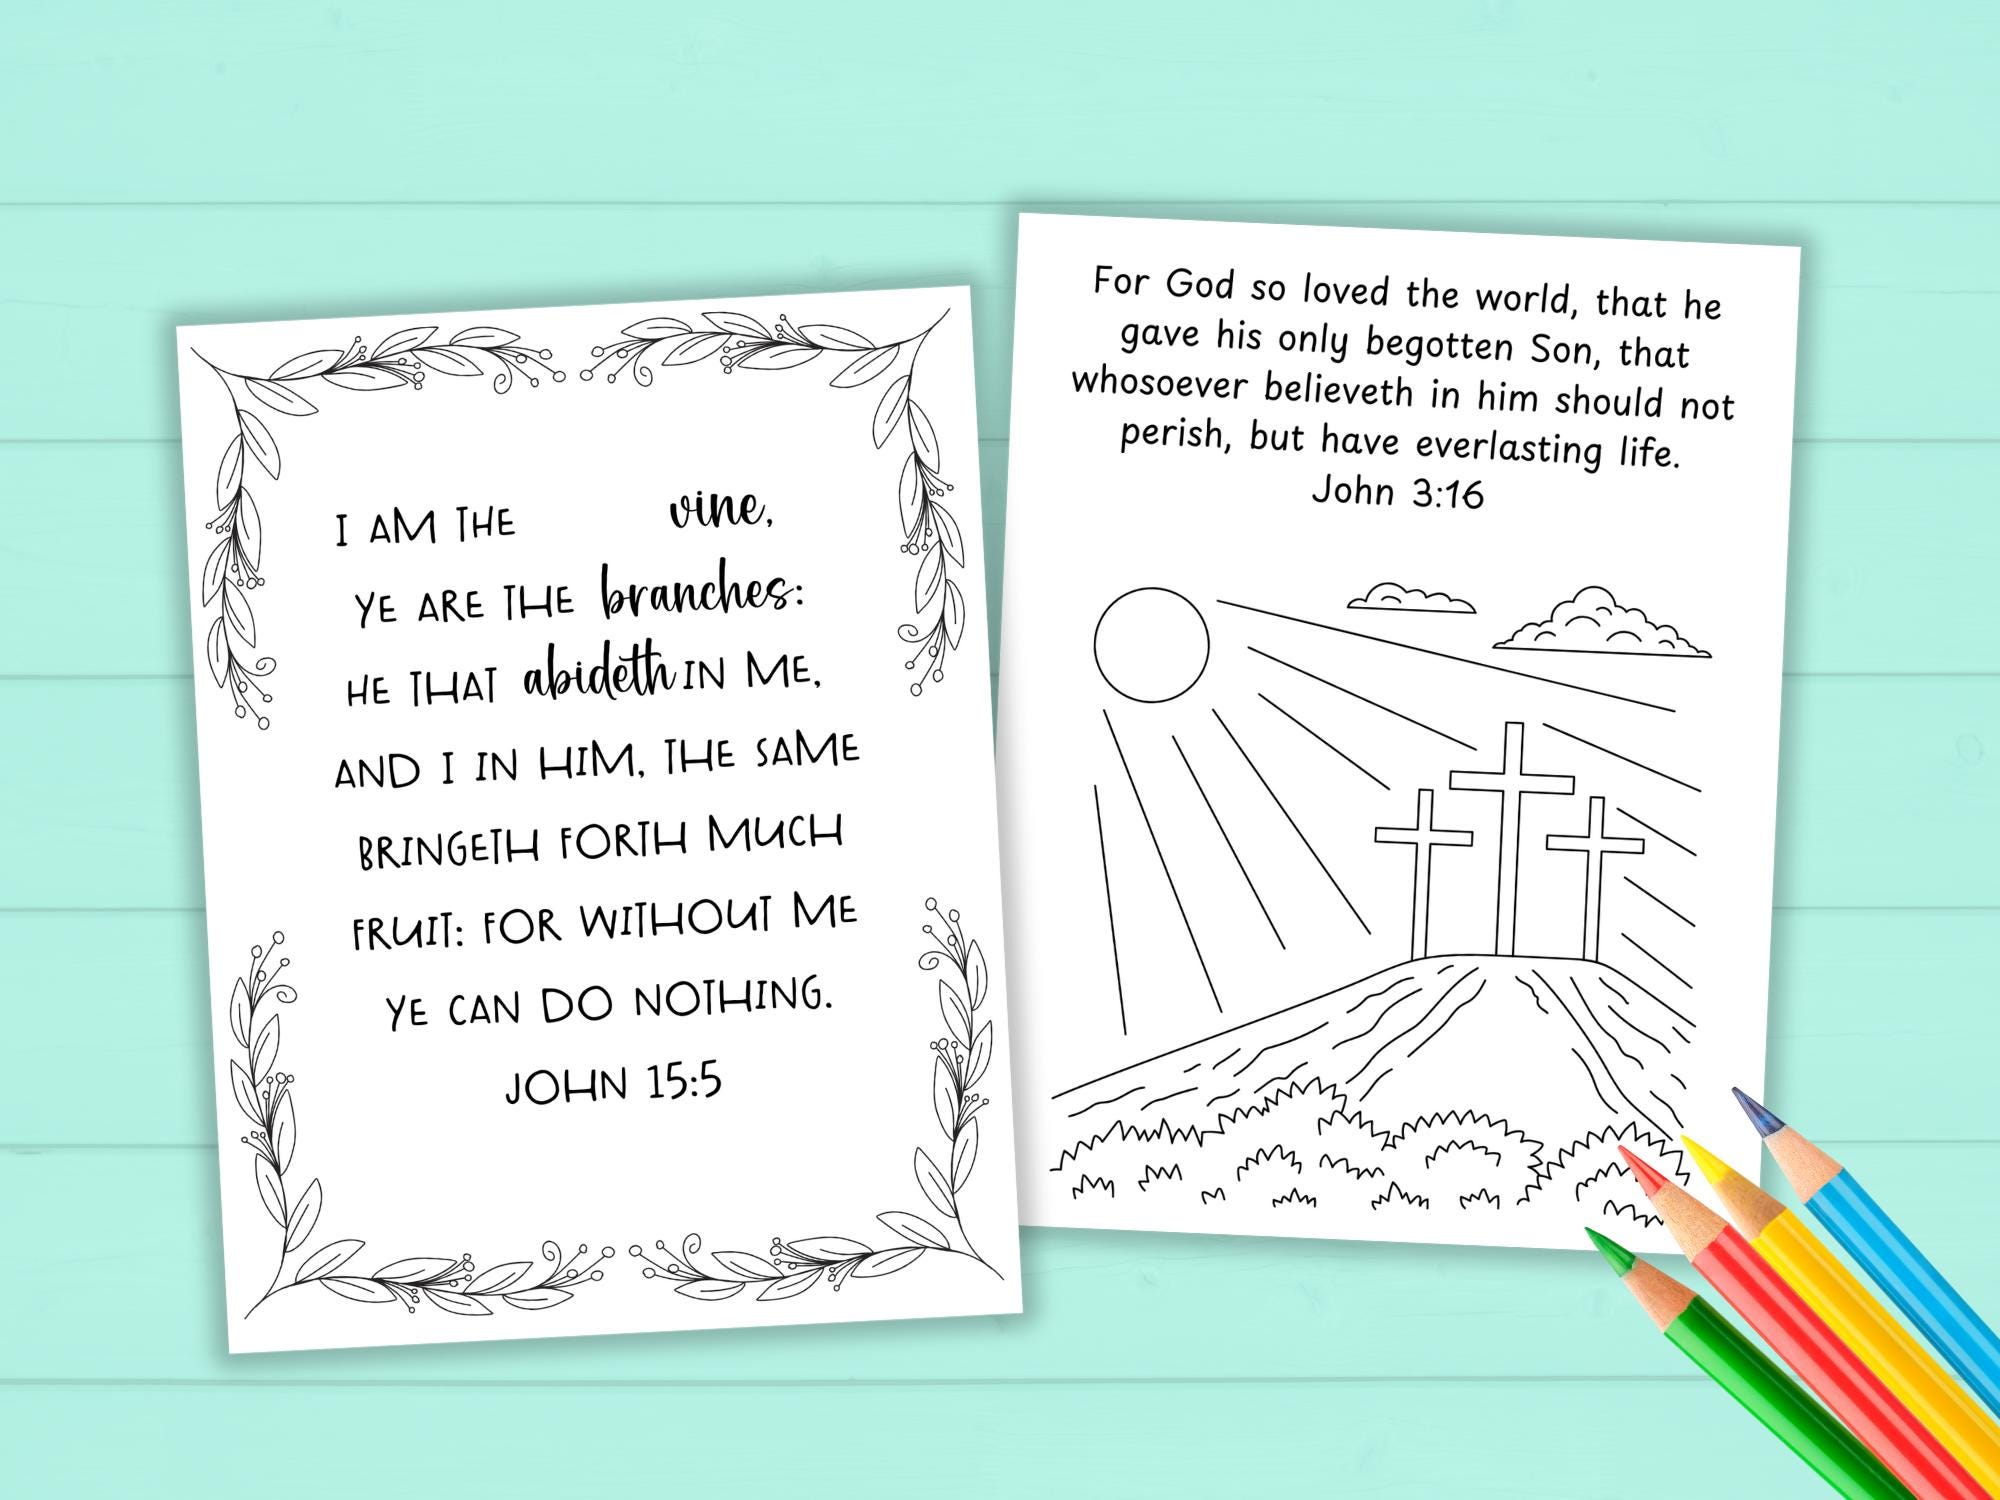 I AM THE vine,
YE ARE THE branches:
HE THAT abideth IN ME,
AND I IN HIM, THE SAME
BRINGETH FORTH MUCH
FRUIT: FOR WITHOUT ME
YE CAN DO NOTHING.
JOHN 15:5
For God so loved the world, that he
gave his only begotten Son, that
whosoever believeth in him should not
perish, but have everlasting life.
John 3:16